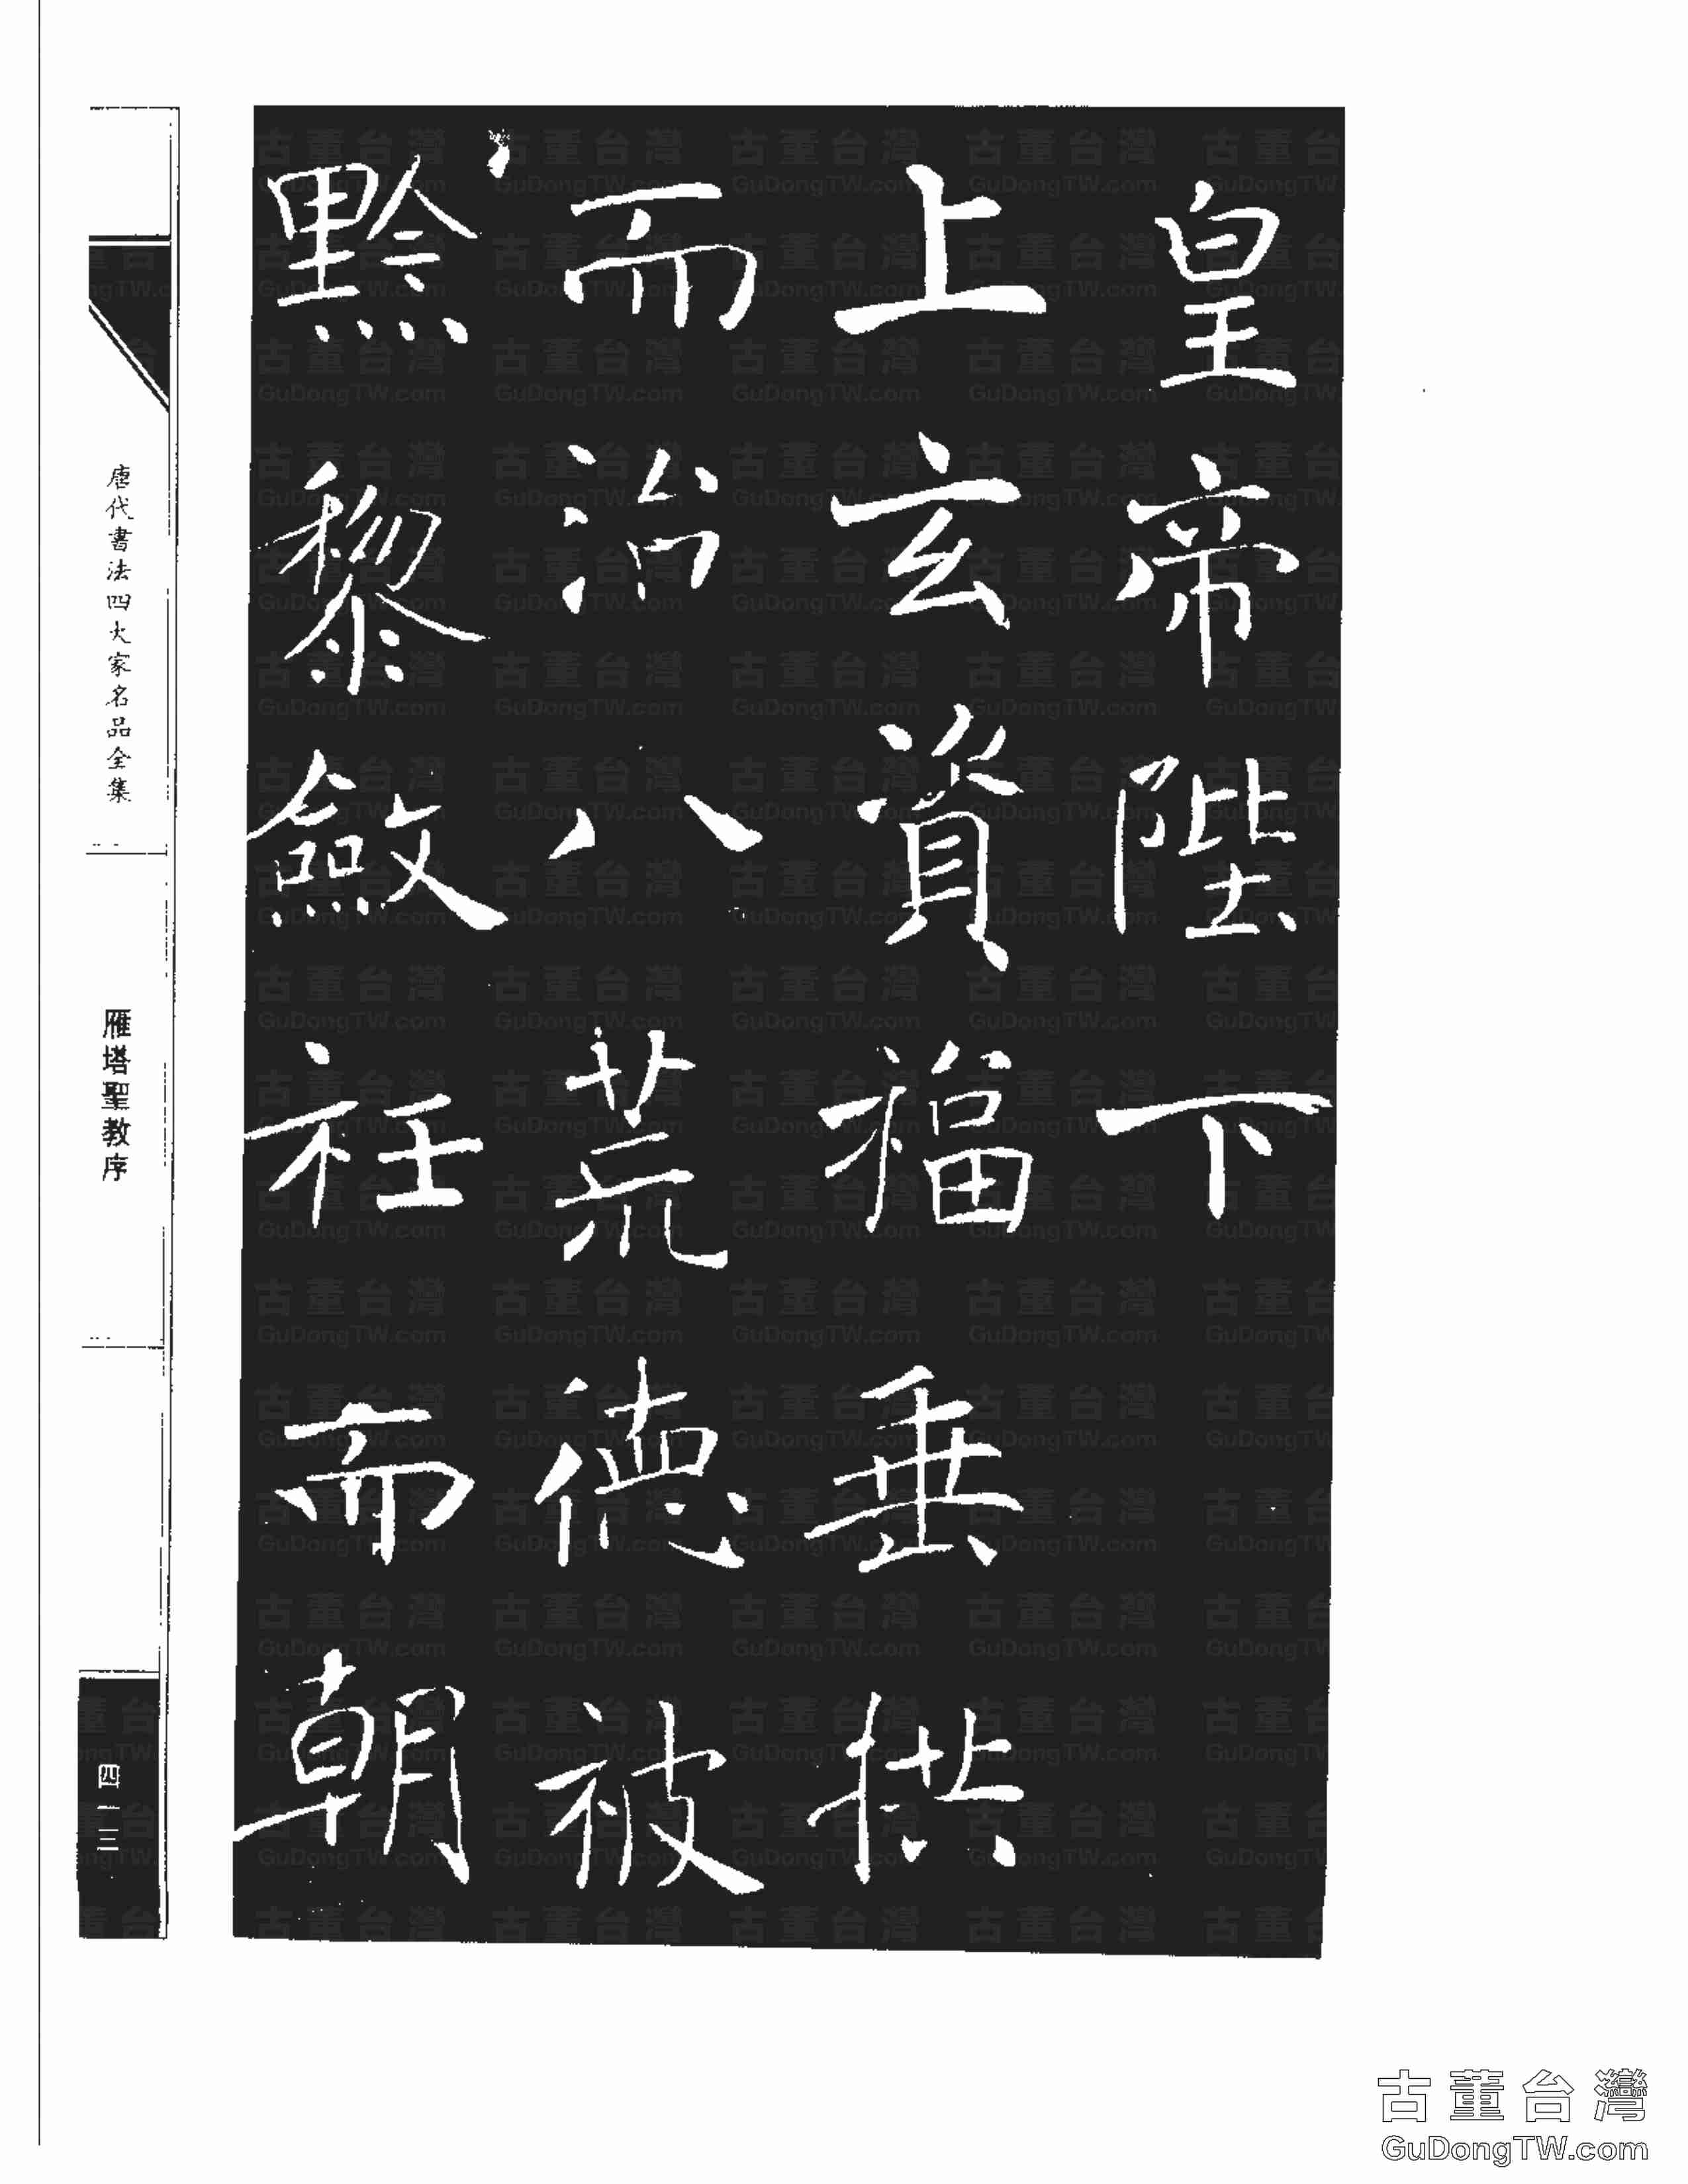 皇帝陛下
上玄資福垂拱
而治八荒德被
黔黎斂衽而朝
唐代書法四大家名品全集
雁塔聖教序
四一三
古董台灣
GuDongTW.com